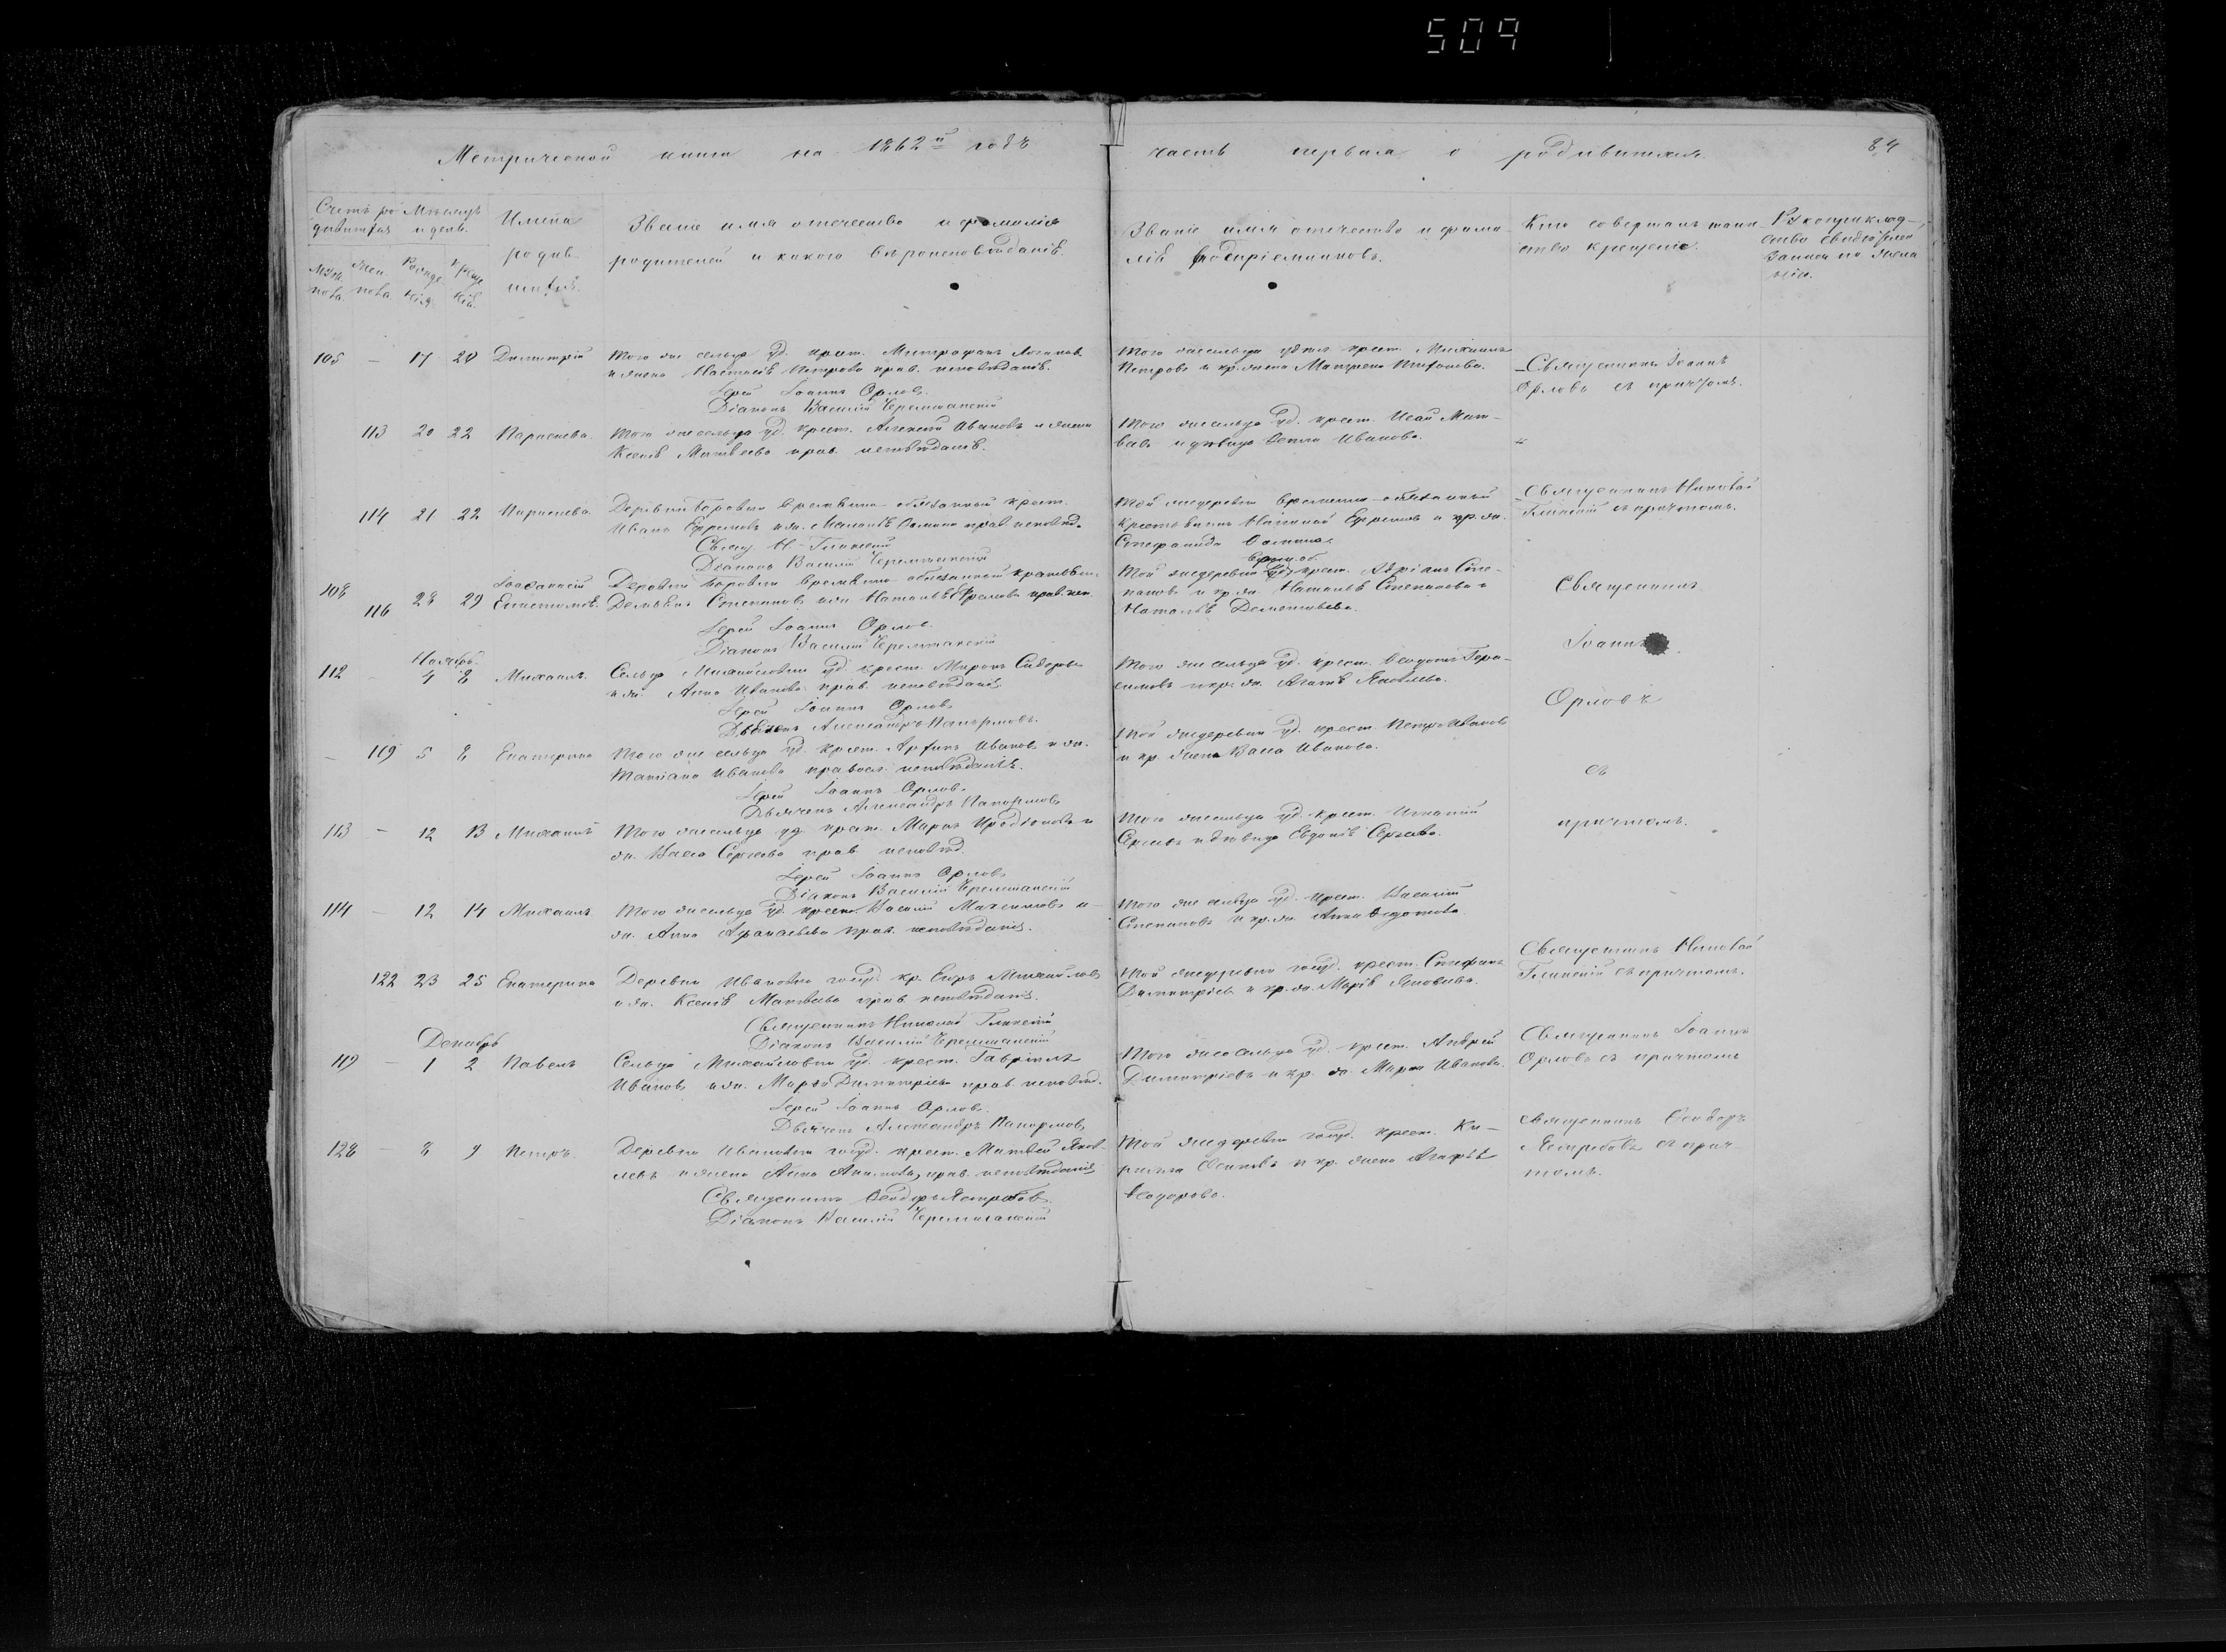 509
Метрической книги на 1862й годъ
часть первая о родившихся.
84
Счетъ ро Мѣсяцъ
дившихся и день.
Муж. Жен. Рожде Креще
пола. пола. нія. нія.
Имена
родив
шихся.
Званіе имя отечество и фамилія
родителей и какого вѣроисповѣданія.
Званіе имя отечество и фами
лія воспріемниковъ.
Кто совершалъ таин
ство крещенія.
Рукоприклад-
ство свидѣтелей
записи по жела
нію.
105 – 17 20 Димитрій
Того же сельца уд. крест. Митрофанъ
и жена Настасія Петрова прав. исповѣданія.
Іерей Іоаннъ Орловъ.
Діаконъ Василій Черемшанскій
Того же сельца уд. крест. Михаилъ
Петровъ и кр. жена Матрена
Священникъ Іоаннъ
Орловъ съ причтомъ.
113 20 22 Параскева.
Того же сельца уд. крест. Алексѣй Ивановъ и жена
Ксенія Матвеева прав. исповѣданія.
Того же сельца уд. крест. Исай Мат-
веевъ и дѣвица Иванова.
114 21 22 Параскева
Деревни Боровки временно-обязанный крест.
Иванъ Ефремовъ и ж. Маланія Фомина прав. исповѣд.
Свящ. Н. Глинскій
Діаконъ Василій Черемшанскій
Той же деревни временно-обязанный
крестьянинъ Николай Ефремовъ и кр. ж.
Стефанида Фомина.
Священникъ Николай
Глинскій съ причтомъ.
108 116 28 29
Деревни Боровки временно-обязанный крестьян.
Степановъ и ж. Наталія Ефремова прав. исп.
Іерей Іоаннъ Орловъ.
Діаконъ Василій Черемшанскій
врем. об.
Той же деревни уд. крест. Адріанъ Сте-
пановъ и кр. ж. Наталія Степанова и
Наталія Дементьева.
Священникъ
Іоаннъ
Орловъ
съ
причтомъ.
Ноябрь.
112 – 4 8 Михаилъ.
Сельца Михайловки уд. крест. Миронъ Сидоровъ
и ж. Анна Иванова прав. исповѣданія.
Іерей Іоаннъ Орловъ
Дьячекъ Александръ Панормовъ.
Того же сельца уд. крест. Гера-
симовъ и кр. ж. Агафія Яковлева.
– 119 5 8 Екатерина
Того же сельца уд. крест. Ивановъ и ж.
Татіана Иванова правосл. исповѣданія.
Іерей Іоаннъ Орловъ.
Дьячекъ Александръ Панормовъ
Той же деревни уд. крест. Петръ Ивановъ
и кр. жена Васса Иванова.
113 – 12 13 Михаилъ
Того же сельца уд. крест. Маркъ Иродіоновъ и
ж. Васса Сергеева прав. исповѣд.
Іерей Іоаннъ Орловъ
Діаконъ Василій Черемшанскій
Того же сельца уд. крест. Игнатій
Сергеевъ и дѣвица Евдокія Сергеева.
114 – 12 14 Михаилъ
Того же сельца уд. крест. Василій Максимовъ и
ж. Анна Афанасьева прав. исповѣданія.
Того же сельца уд. крест. Василій
Степановъ и кр. ж. Анна Федотова
122 23 25 Екатерина
Деревни Ивановки госуд. кр. Егоръ Михайловъ
и ж. Ксенія Матвеева прав. исповѣданія.
Священникъ Николай Глинскій
Діаконъ Василій Черемшанскій
Той же деревни госуд. крест. Стефанъ
Димитріевъ и кр. ж. Марія Яковлева.
Священникъ Николай
Глинскій съ причтомъ.
Декабрь
119 – 1 2 Павелъ
Сельца Михайловки уд. крест. Гавріилъ
Ивановъ и ж. Марѳа Димитріева прав. исповѣд.
Іерей Іоаннъ Орловъ.
Дьячекъ Александръ Панормовъ
Того же сельца уд. крест. Андрей
Димитріевъ и кр. ж. Марія Иванова.
Священникъ Іоаннъ
Орловъ съ причтомъ
128 – 8 9 Петръ.
Деревни Ивановки госуд. крест. Матвей Яков-
левъ и жена Анна прав. исповѣданія
Священникъ Ѳеодоръ Ястребовъ.
Діаконъ Василій Черемшанскій
Той же деревни госуд. крест. Ки-
рилла Осиповъ и кр. жена Агафія
Ѳеодорова.
Священникъ Ѳеодоръ
Ястребовъ съ прич-
томъ.